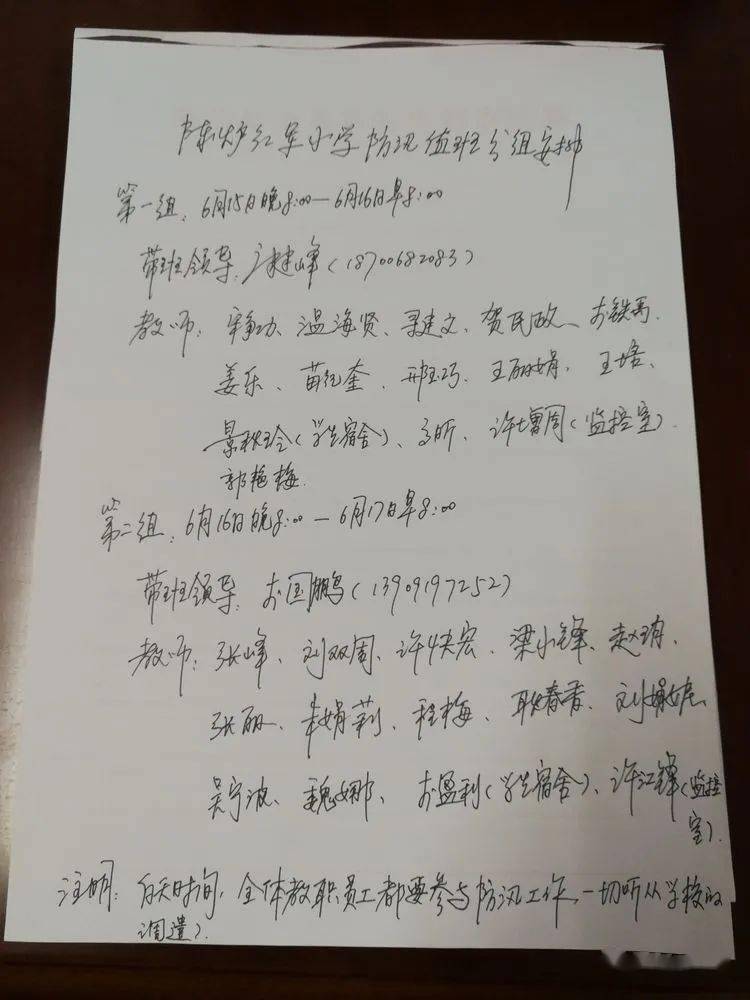 陈炉红军小学防汛值班分组安排
第一组:6月15日晚8:00—6月16日早8:00
带班领导:建峰(18700682083)
教师:温海贤、寻建文、贺民政、铁马、
姜乐、苗纪奎、邢巧、王丽娟、王培、
景秋玲(学生宿舍)、高昕、许增周(监控室)
郭艳梅
第二组:6月16日晚8:00—6月17日早8:00
带班领导:国鹏(13909197252)
教师:张峰、刘双周、许快宏、梁小锋、赵、
张丽、朱娟莉、程梅、耿春香、刘娟
吴宁波、魏娜、盈利(学生宿舍)、许江锋(监控
室)
注明:白天时间,全体教职员工都要参与防汛工作,一切听从学校的
调遣.